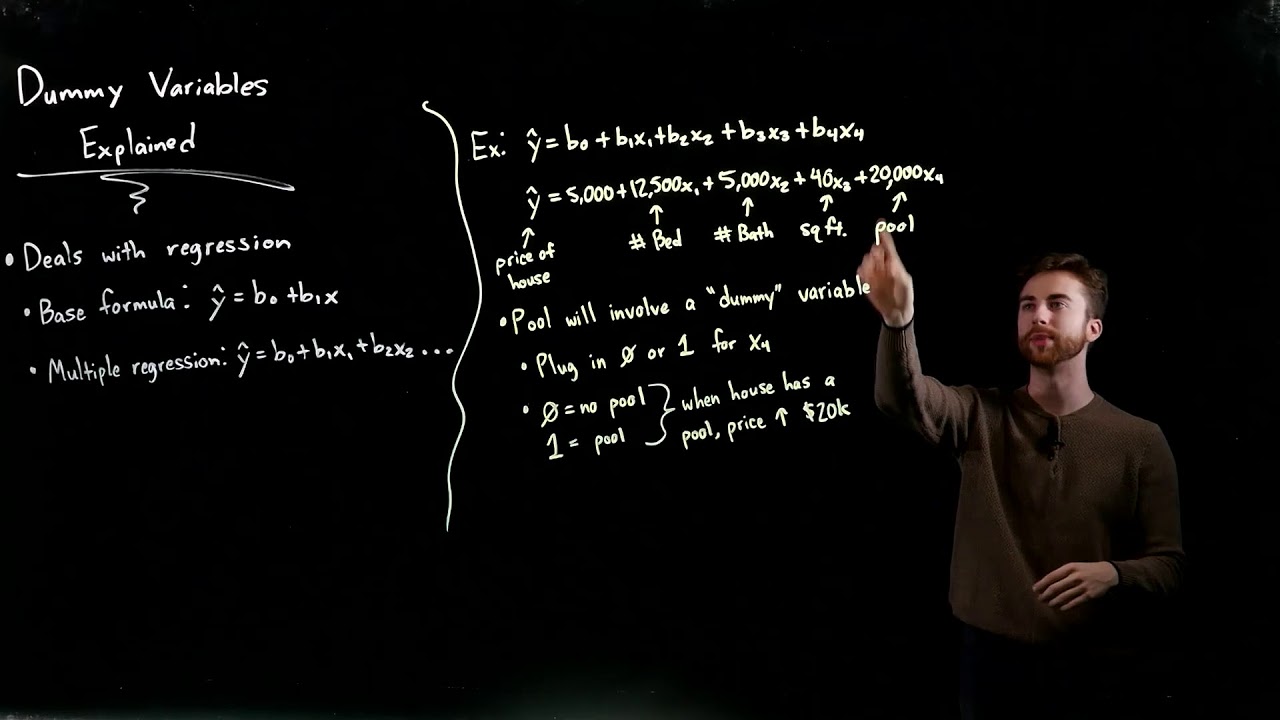 Dummy Variables
Explained
• Deals with regression
• Base formula: ŷ = b₀ + b₁x
• Multiple regression: ŷ = b₀ + b₁x₁ + b₂x₂ ...
Ex: ŷ = b₀ + b₁x₁ + b₂x₂ + b₃x₃ + b₄x₄
ŷ = 5,000 + 12,500x₁ + 5,000x₂ + 40x₃ + 20,000x₄
↑ ↑ ↑ ↑ ↑
price of house # Bed # Bath sq ft. pool
• Pool will involve a "dummy" variable
• Plug in 0 or 1 for x₄
• 0 = no pool } when house has a
1 = pool } pool, price ↑ $20k